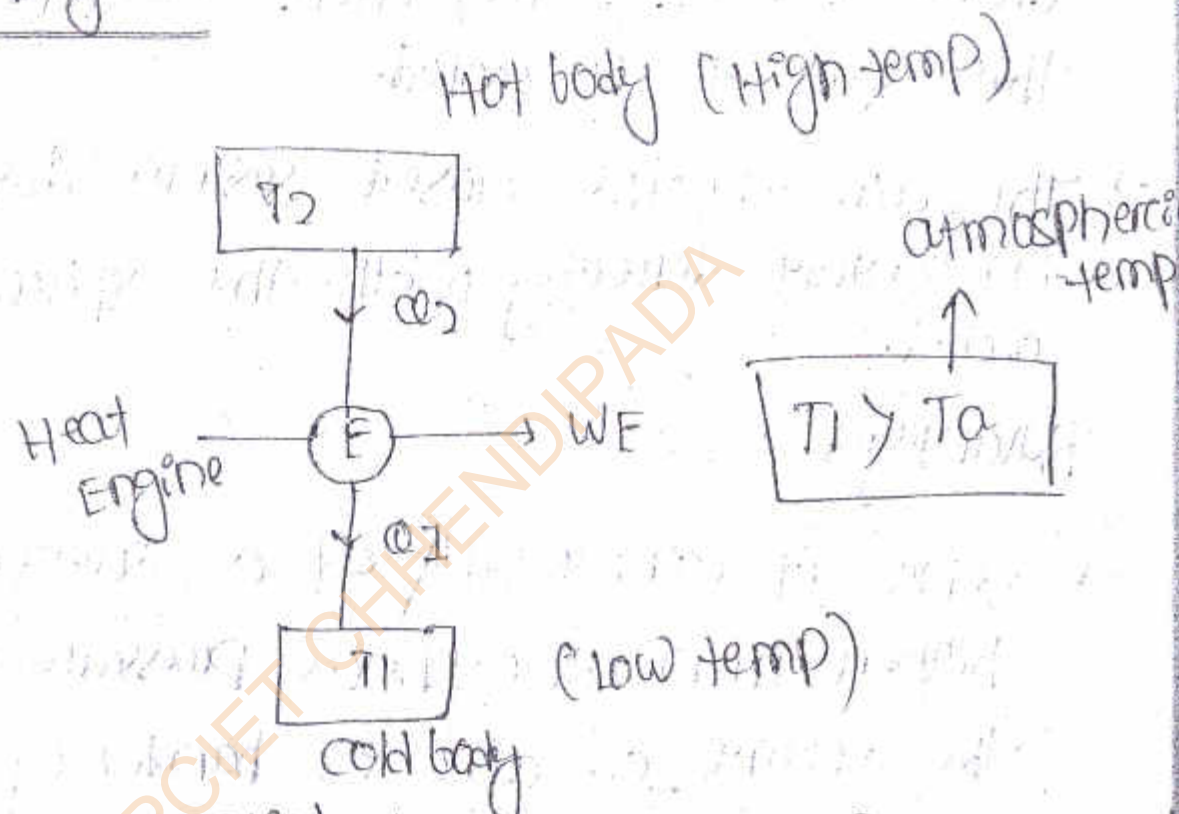 Hot body (High temp)
T2
Q2
atmospherci
temp
Heat
Engine
E
WE
T1 > Ta
Q1
T1
(Low temp)
cold body
RCIET CHHENDIPADA